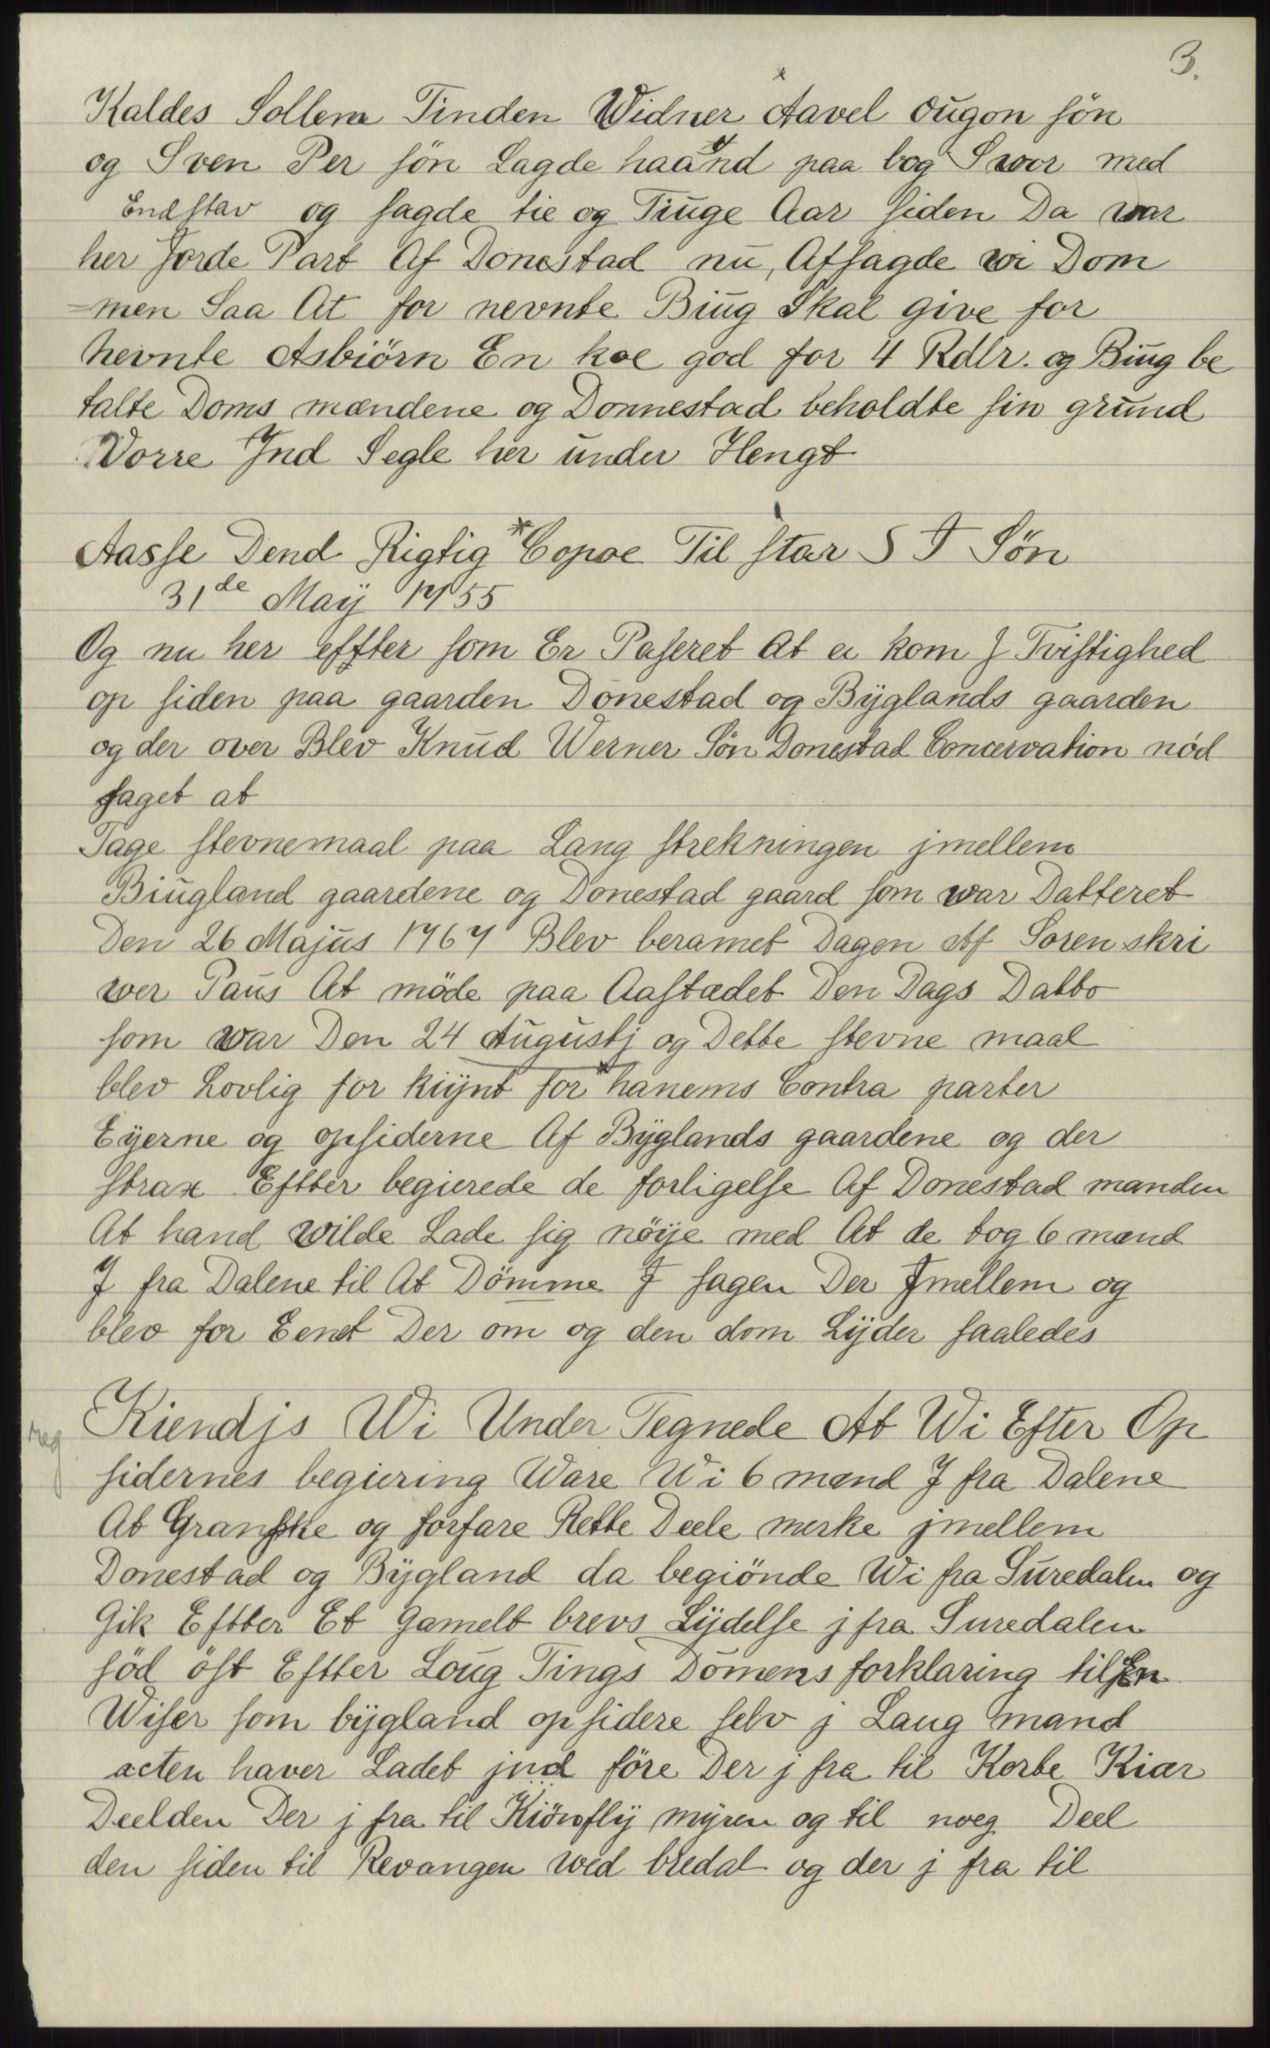 3.
Kaldes Sollem Tinden Widner Aavel ougon søn
og Sven Per søn Lagde haand paa bog Swor med
Endstav og sagde tie og Tiuge Aar siden Da war
her Jorde Part Af Donestad nu, Afsagde wi Dom
=men Saa At for nevnte Biug Skal give for
nevnte Asbiörn En koe god for 4 Rdlr. og Biug be
talte Doms mændene og Donnestad beholdte sin grund
Vorre Ind Segle her under Hengt
Aasse Dend Rigtig *Copoe Til star S T Søn
31de Maÿ 1755
Og nu her effter som Er Paseret At ei kom J Tvistighed
op siden paa gaarden Donestad og Bÿglands gaarden
og der over Blev Knud Werner Søn Donestad Concervation nöd
saget at
Tage stevnemaal paa Lang strekningen jmellem
Biugland gaardene og Donestad gaard som war Datteret
Den 26 Majus 1767 Blev beramet Dagen Af Soren skri
wer Paus At möde paa Aastædet Den Dags Datto
som war Den 24 Augustj og Dette stevne maal
blev Lovlig for kÿnt for *hanems Contra parter
Eÿerne og opsiderne Af Bÿglands gaardene og der
strax Eftter begierede de forligelse Af Donestad manden
At hand wilde Lade sig nöÿe med At de tog 6 mænd
J fra Dalene til At Dömme J sagen Der Jmellem og
blev for Eenet Der om og den dom Lÿder saaledes
reg
Kiendjs Wi Under Tegnede At Wi Efter Op
sidernes begiering Ware Wi 6 mænd J fra Dalene
At Granske og forfare Rette Deele merke jmellem
Donestad og Bÿgland da begiönde Wi fra Suredalen og
Gik Eftter Et Gamelt brevs Lÿdelse j fra Suredalen
söd öst Eftter Loug Tings Domens forklaring til En
Wiser som bÿgland opsidere selv j Laug mand
acten haver Ladet jnd före Der j fra til Korte Kiær
Deelden Der j fra til Kiönflÿ mÿren og til noeg Deel
den siden til Revangen wed bredal og der j fra til